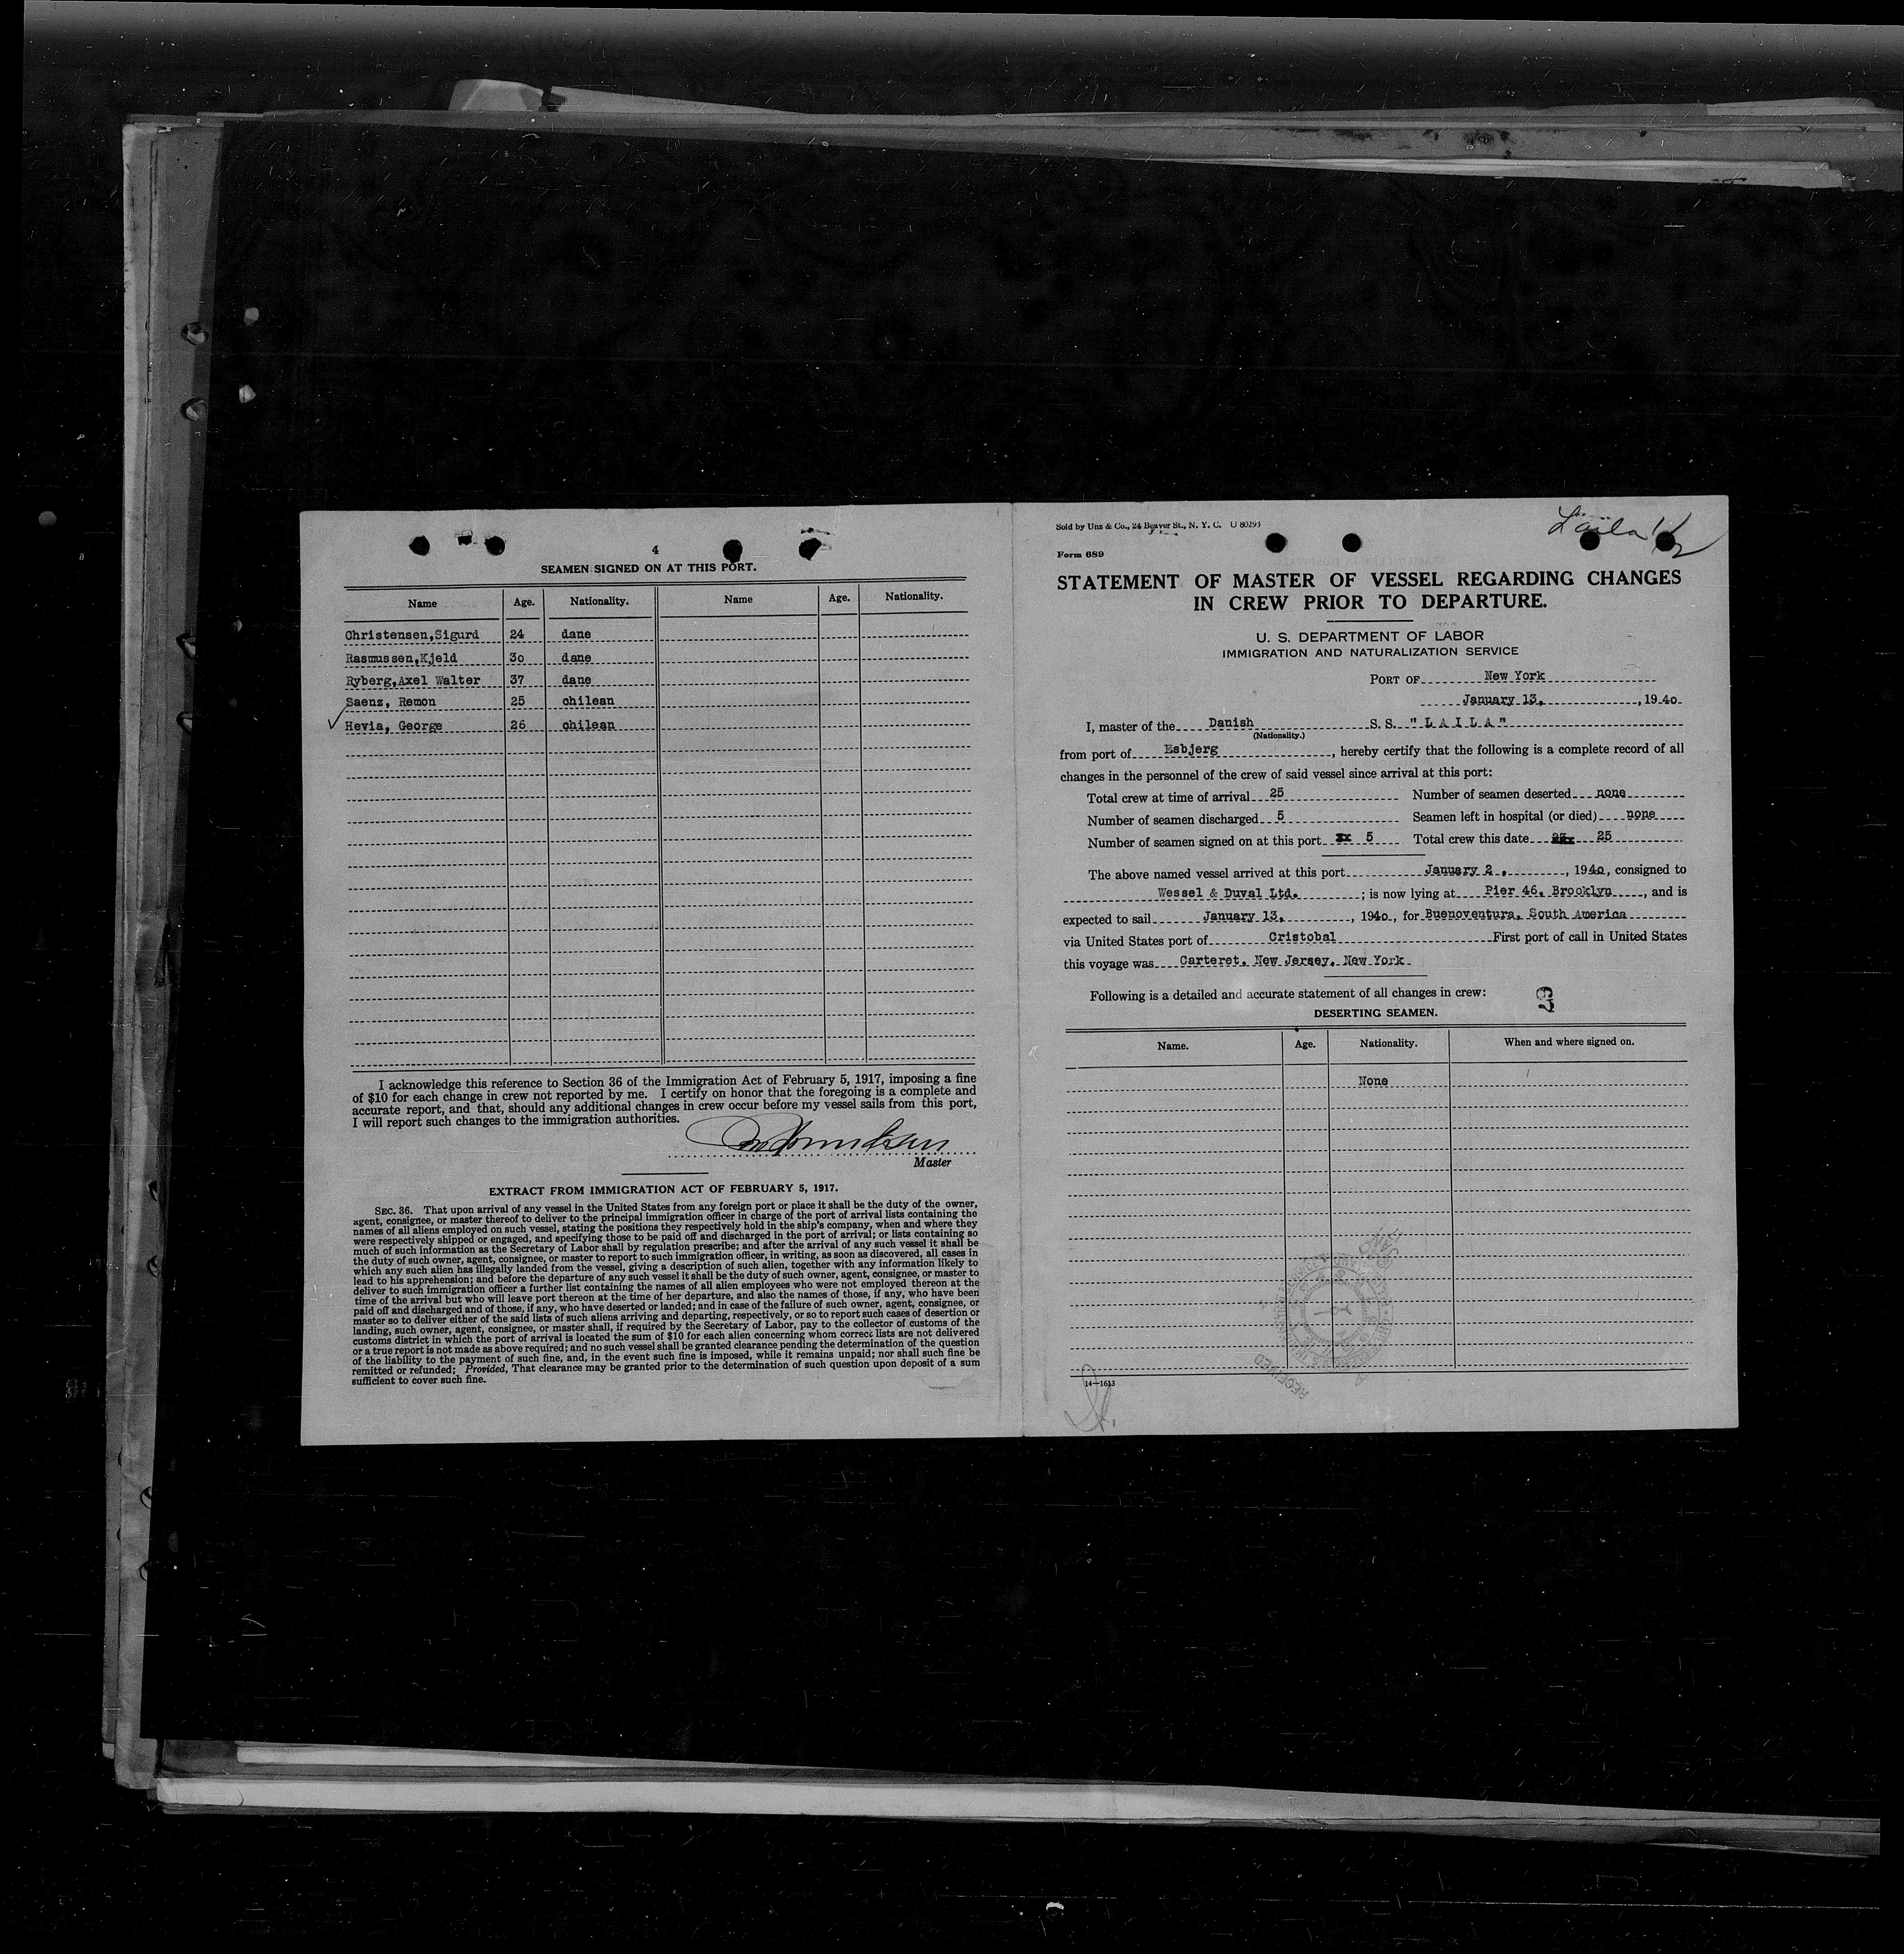 4
SEAMEN SIGNED ON AT THIS PORT.
Name Age. Nationality. Name Age. Nationality.
Christensen,Sigurd 24 dane
Rasmussen,Kjeld 3o dane
Ryberg,Axel Walter 37 dane
Saenz, Remon 25 chilean
✓ Hevia, George 26 chilean
I acknowledge this reference to Section 36 of the Immigration Act of February 5, 1917, imposing a fine
of $10 for each change in crew not reported by me. I certify on honor that the foregoing is a complete and
accurate report, and that, should any additional changes in crew occur before my vessel sails from this port,
I will report such changes to the immigration authorities.
Master
EXTRACT FROM IMMIGRATION ACT OF FEBRUARY 5, 1917.
SEC. 36. That upon arrival of any vessel in the United States from any foreign port or place it shall be the duty of the owner,
agent, consignee, or master thereof to deliver to the principal immigration officer in charge of the port of arrival lists containing the
names of all aliens employed on such vessel, stating the positions they respectively hold in the ship's company, when and where they
were respectively shipped or engaged, and specifying those to be paid off and discharged in the port of arrival; or lists containing so
much of such information as the Secretary of Labor shall by regulation prescribe; and after the arrival of any such vessel it shall be
the duty of such owner, agent, consignee, or master to report to such immigration officer, in writing, as soon as discovered, all cases in
which any such alien has illegally landed from the vessel, giving a description of such alien, together with any information likely to
lead to his apprehension; and before the departure of any such vessel it shall be the duty of such owner, agent, consignee, or master to
deliver to such immigration officer a further list containing the names of all alien employees who were not employed thereon at the
time of the arrival but who will leave port thereon at the time of her departure, and also the names of those, if any, who have been
paid off and discharged and of those, if any, who have deserted or landed; and in case of the failure of such owner, agent, consignee, or
master so to deliver either of the said lists of such aliens arriving and departing, respectively, or so to report such cases of desertion or
landing, such owner, agent, consignee, or master shall, if required by the Secretary of Labor, pay to the collector of customs of the
customs district in which the port of arrival is located the sum of $10 for each alien concerning whom correct lists are not delivered
or a true report is not made as above required; and no such vessel shall be granted clearance pending the determination of the question
of the liability to the payment of such fine, and, in the event such fine is imposed, while it remains unpaid; nor shall such fine be
remitted or refunded; Provided, That clearance may be granted prior to the determination of such question upon deposit of a sum
sufficient to cover such fine.
Sold by Unz & Co., 24 Beaver St., N. Y. C. U 80293
Laila 1/2
Form 689
STATEMENT OF MASTER OF VESSEL REGARDING CHANGES
IN CREW PRIOR TO DEPARTURE.
U. S. DEPARTMENT OF LABOR
IMMIGRATION AND NATURALIZATION SERVICE
PORT OF New York
January 13, , 194o
I, master of the Danish S.S. "L A I L A"
(Nationality.)
from port of Esbjerg , hereby certify that the following is a complete record of all
changes in the personnel of the crew of said vessel since arrival at this port:
Total crew at time of arrival 25 Number of seamen deserted none
Number of seamen discharged 5 Seamen left in hospital (or died) none
Number of seamen signed on at this port 5 Total crew this date 25
The above named vessel arrived at this port January 2 , , 194o, consigned to
Wessel & Duval Ltd. ; is now lying at Pier 46, Brooklyn , and is
expected to sail January 13, , 194o, for Buenoventura, South America
via United States port of Cristobal First port of call in United States
this voyage was Carteret, New Jersey, New York
Following is a detailed and accurate statement of all changes in crew:
DESERTING SEAMEN.
Name. Age. Nationality. When and where signed on.
None
RECEIVED
14—1613